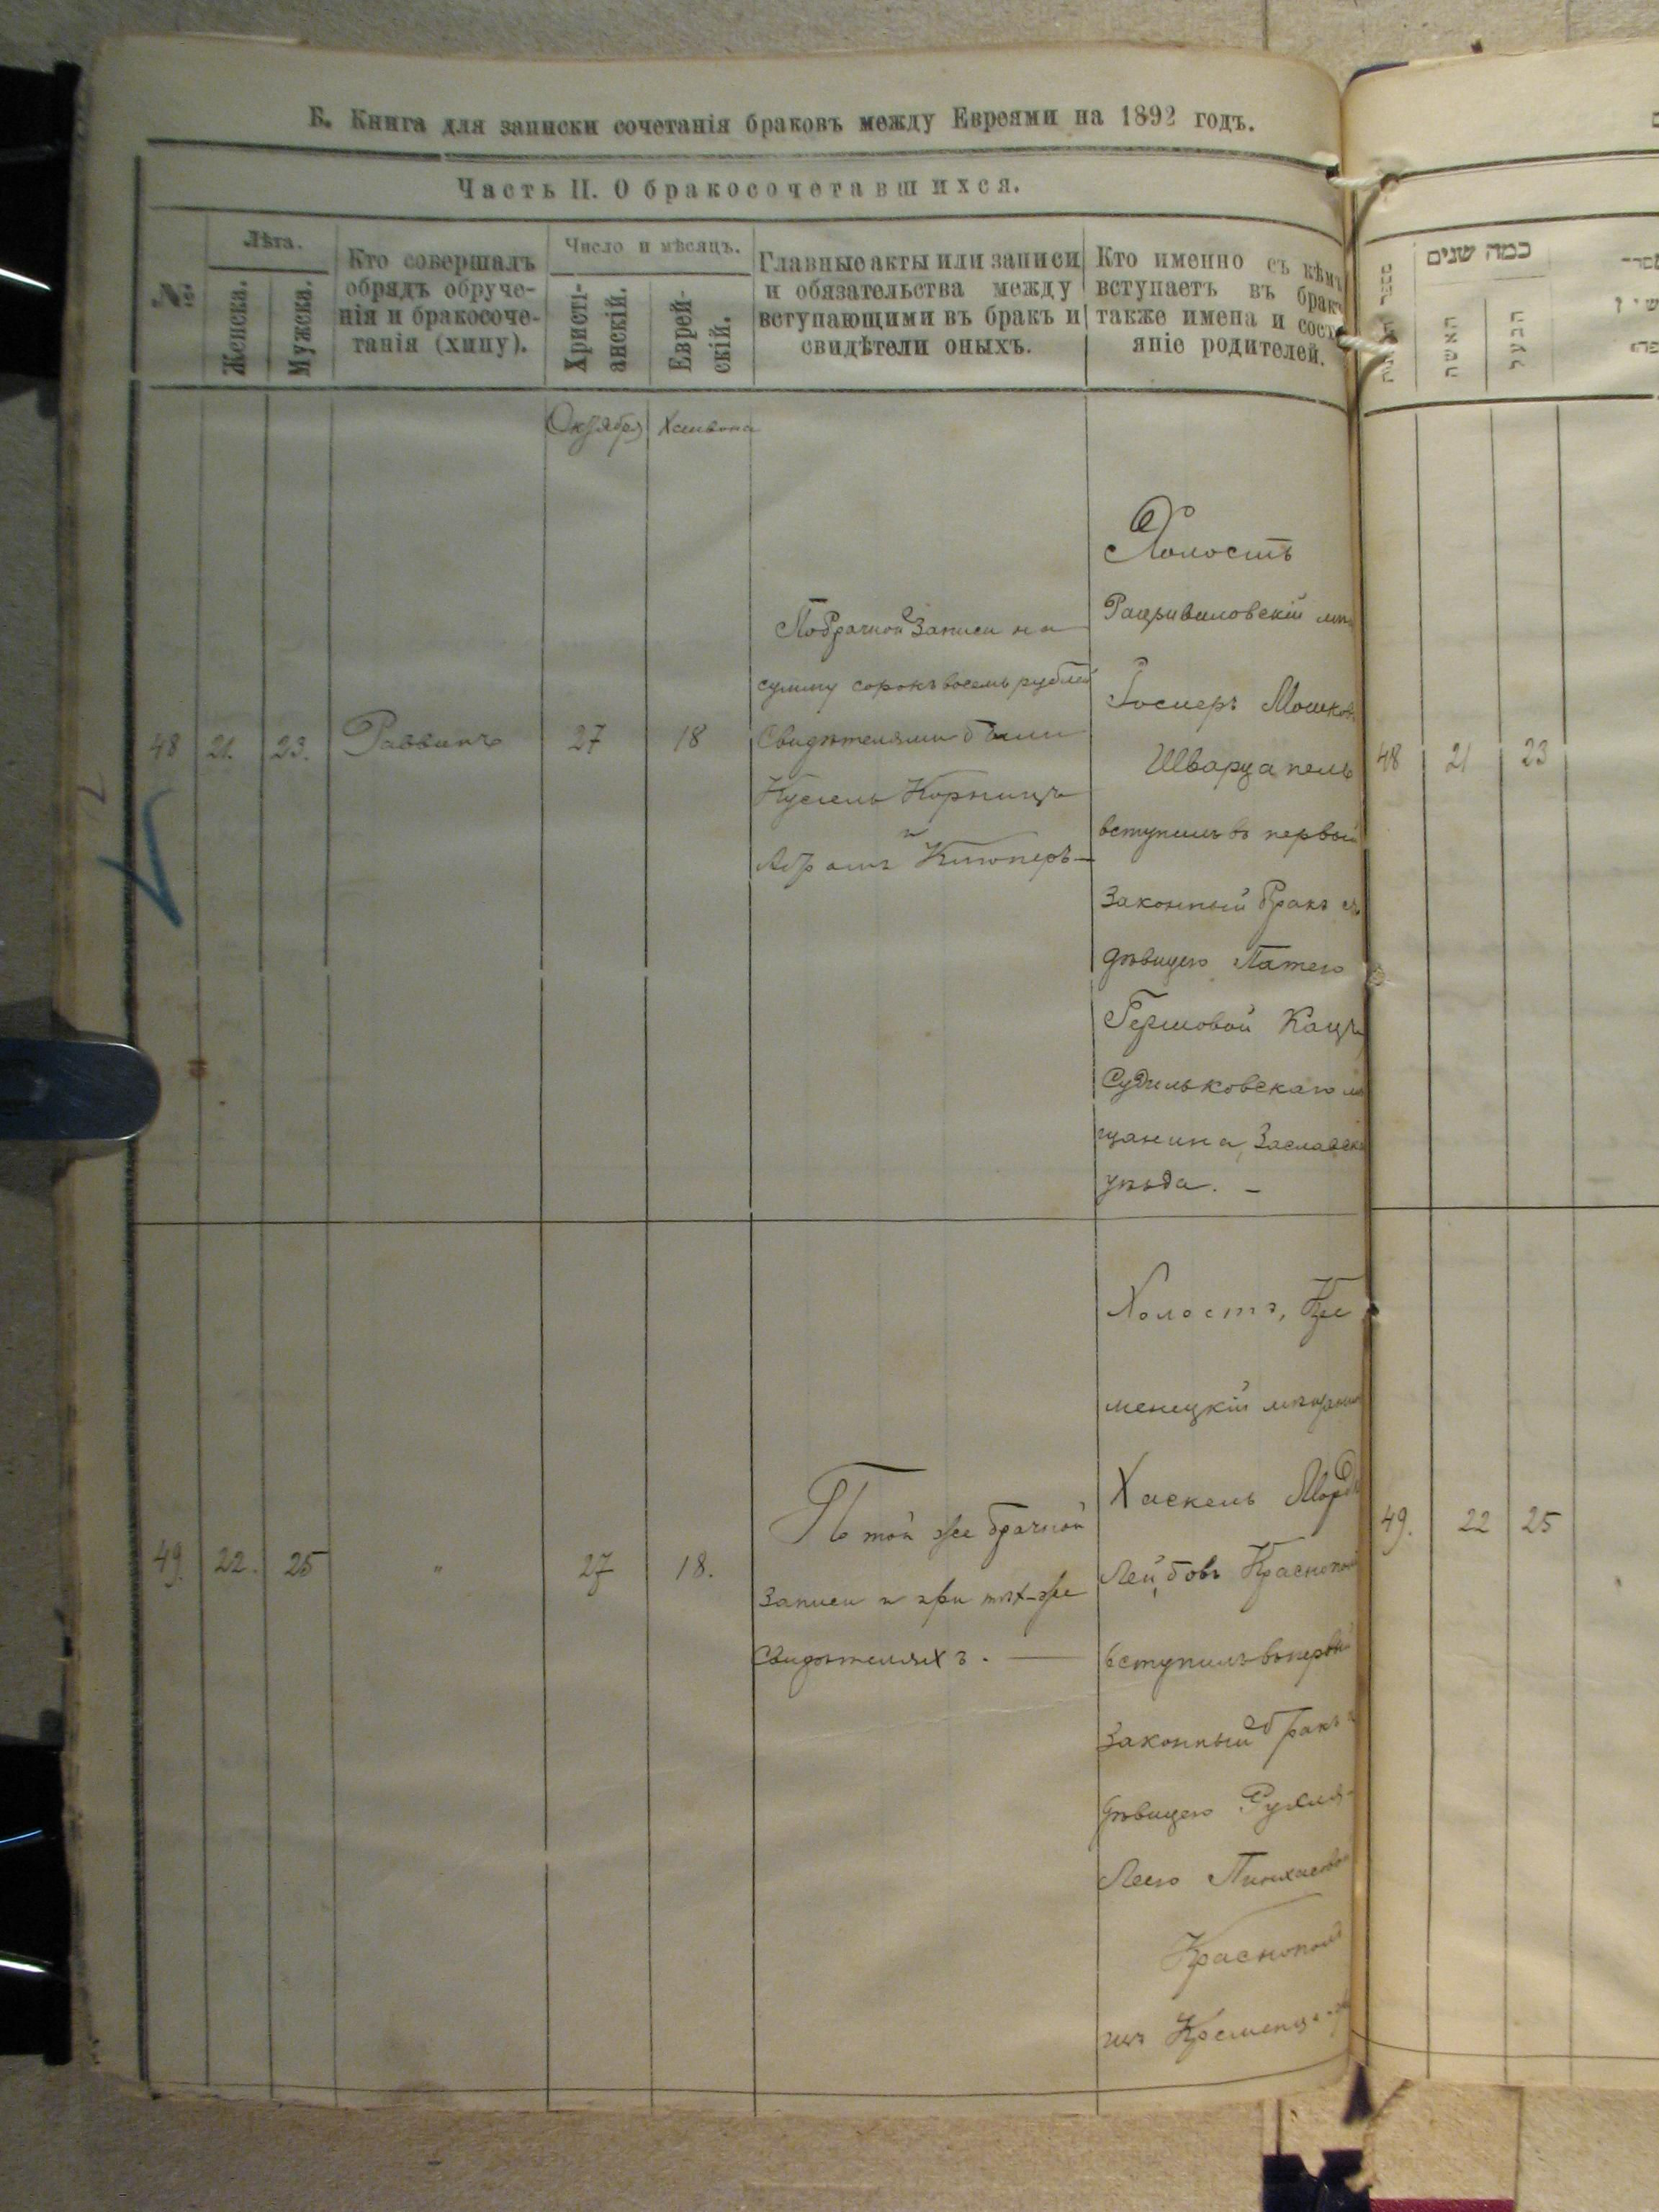 Б. Книга для записки сочетанія браковъ между Евреями на 1892 годъ.
Часть II. О бракосочетавшихся.
№
Лѣта.
Женска.
Мужска.
Кто совершалъ
обрядъ обруче-
нія и бракосоче-
танія (хипу).
Число и мѣсяцъ.
Христі-
анскій.
Еврей-
скій.
Главные акты или записи
и обязательства между
вступающими въ бракъ и
свидѣтели оныхъ.
Кто именно съ кѣмъ
вступаетъ въ бракъ
также имена и сост
яніе родителей.
כמה שנים
האשה
הבעל
Октября Хешвона
48 21. 23. Раввинъ 27 18
По брачной записи на
сумму сорокъ восемь рублей
Свидѣтелями были
Кусель Корницъ
и
Абрамъ Клюперъ
Холостъ
Радзивиловскій
Мошков
Шварцапель
вступилъ въ первый
законный бракъ съ
дѣвицею
Гершовой Кацъ
Судильковскаго м
щанина, Заславск
уѣзда. —
48 21 23
49. 22. 25 " 27 18.
По той же брачной
записи и при тѣх-же
свидѣтеляхъ. —
Холостъ, Кре
менецкій мѣщанин
Хаскель Морд
Лейбовъ Краснопол
вступилъ въ первый
законный бракъ
дѣвицею Рухля-
Лею Пинхасово
Краснопол
Кременц
49. 22 25